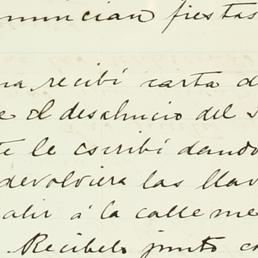 nuncian fiestas
na recibí carta d
e el desahucio del s
te le escribí dando
devolviera las llav
alir á la calle me
. Recibelo junto co